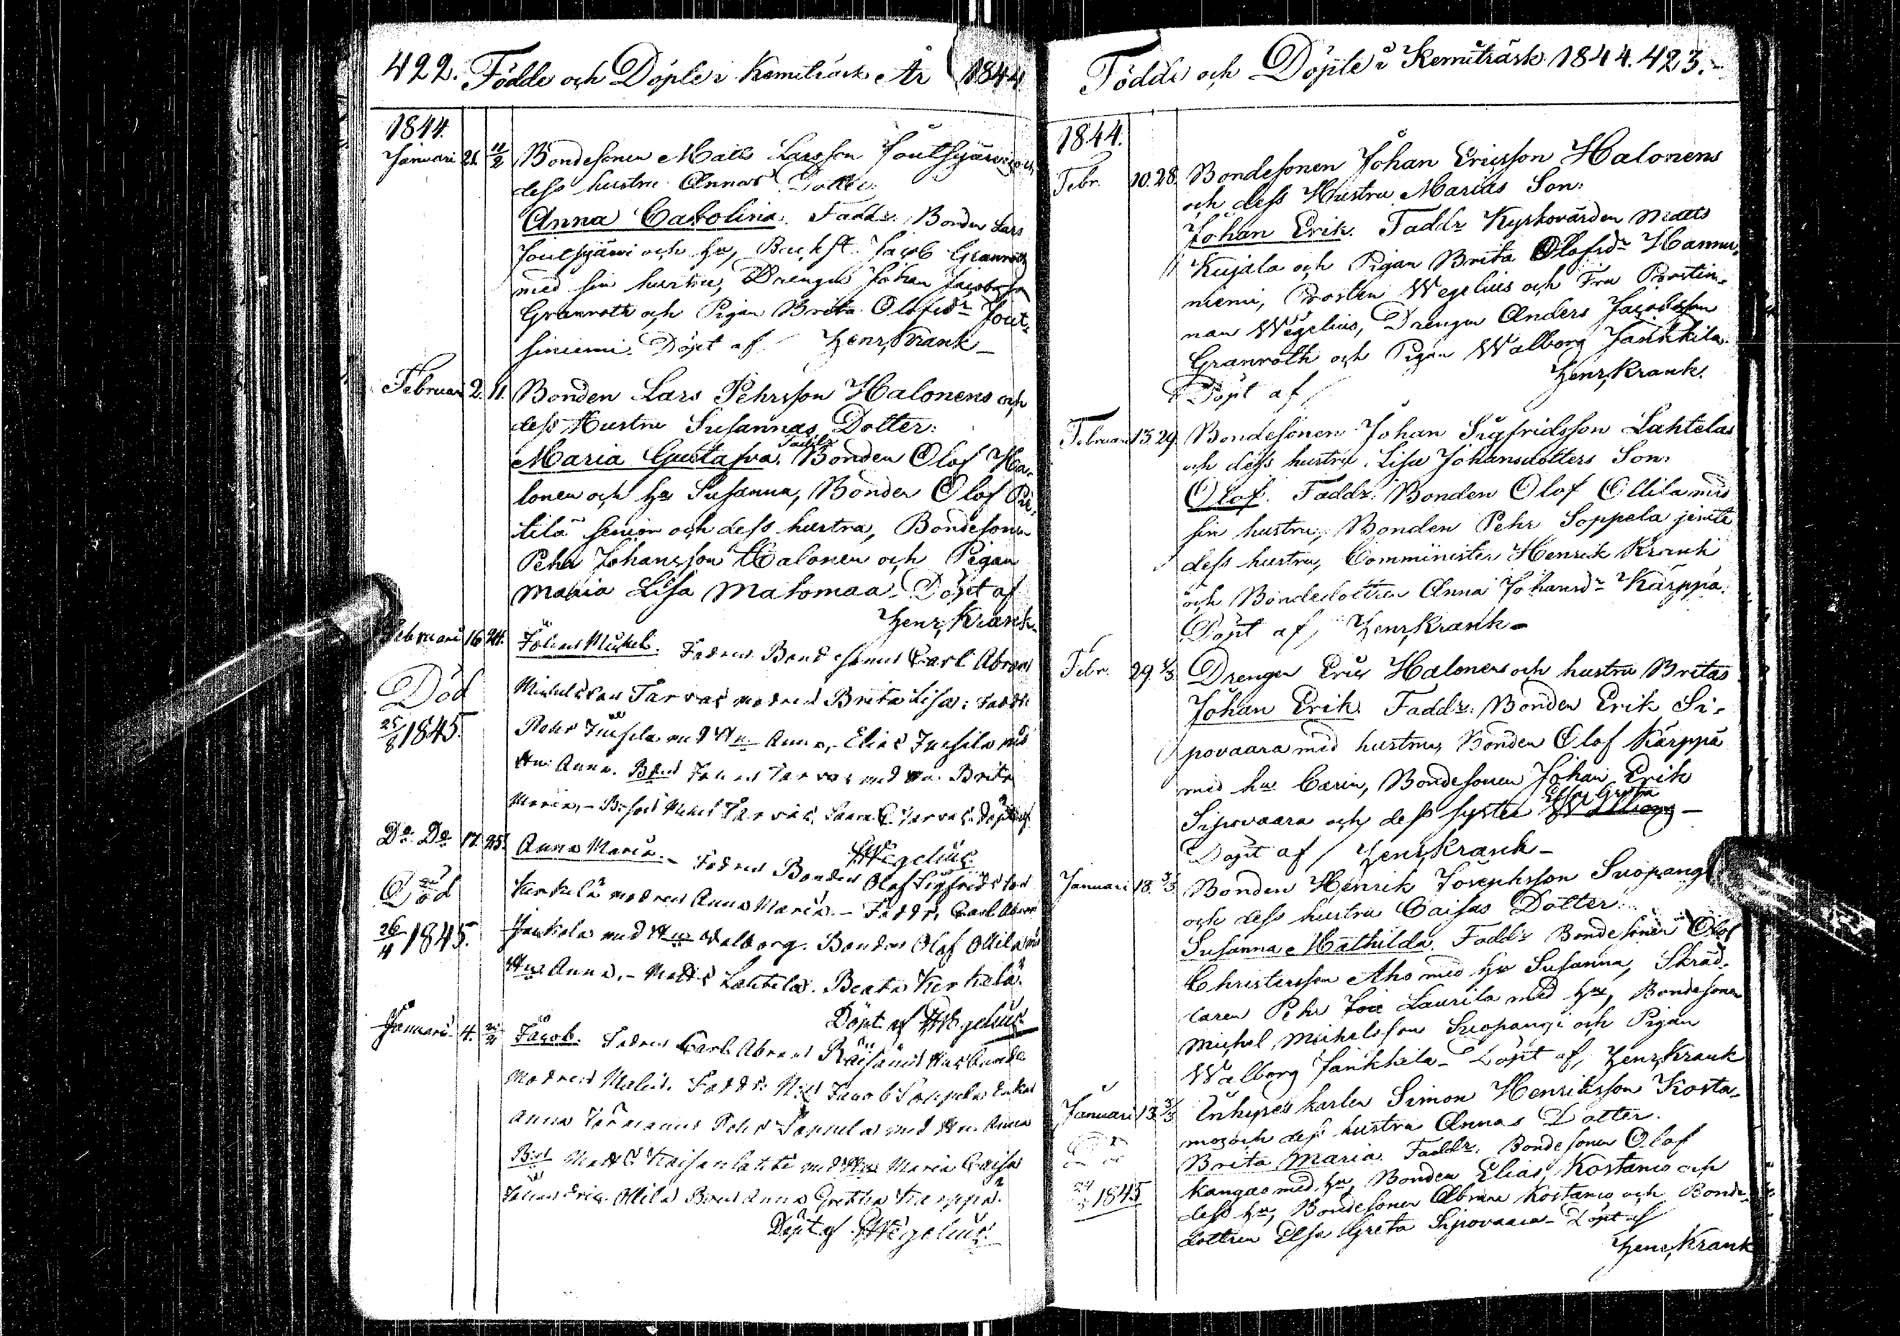 422. Födde och Döpte i Kemiträsk År 1844
1844.
Januari 21. 11/2 Bondesonen Matts Larsson Joutsijärvi och
dess hustru Annas Dotter:
Anna Carolina. Faddr. Bonden Lars
Joutsijärvi och hu, Backst. Jacob Granroth
med sin hustru, Drengen Johan Jacobsson
Granroth och Pigan Brita Olofsdr Jout-
siniemi. Döpt af Henr, Krank
Februari 2. 11. Bonden Lars Pehrsson Halonens och
dess Hustru Susannas Dotter:
Maria Gustafva. Faddr Bonden Olof Ha-
lonen och hu Susanna, Bonden Olof Pi-
tilä senior och dess hustru, Bondesonen
Pehr Johansson Halonen och Pigan
Maria Lisa Matomaa. Döpt af
Henr, Krank
Februari 16 24. Johan Mickel. Fadren Bondesonen Carl Abram
Mickelsson Tarvas modren Brita Lisa: Faddr:
Död
25/8 1845.
Pehr Juusila med Hu Anna, Elias Juusila med
Hu Anna. Bond Johan Tarvas med Hu Brita
Maria, Mickel Tarvas, Döpt af
HWegelius.
Do Do 17. 25. Anna Maria. Fadren Bonden Olof Sigfridsson
modren Anna Maria. Faddr, Carl Abram
Död
26/4 1845.
Jankala med Hu Walborg. Bonden Olof Ollila med
Hu Anna, Matts Lahtela. Beata
Döpt af HWegelius
Januari 4. Jacob. Fadren Carl Abram Räisänen
modren Maria. Faddr: Jacob Soppela Enkan
Anna Pehr Soppela med Hu Anna
Bond Matts Kaisanlahti med Hu Maria Caisa
Johan Eric Ollila Anna Gretha Karppa.
Döpt af HWegelius.
Födde och Döpte i Kemiträsk 1844. 423.
1844.
Febr. 10. 28. Bondesonen Johan Ericsson Halonens
och dess Hustru Marias Son:
Johan Erik. Faddr Kyrkovärden Matts
Kujala och Pigan Brita Olofsdr Hannu-
niemi, Prosten Wegelius och Fru Prostin-
nan Wegelius, Drengen Anders Jacobsson
Granroth och Pigan Walborg Jankkila.
Döpt af Henr, Krank.
Februari 15. 29. Bondesonen Johan Sigfridsson Lahtelas
och dess hustru Lisa Johansdotters Son:
Olof. Faddr. Bonden Olof Ollila med
sin hustru, Bonden Pehr Soppela jemte
dess hustru, Comminister Henrik Krank
och Bondedottren Anna Johansdr Kärppä.
Döpt af Henr, Krank
Febr. 29. 3/3. Drengen Eric Halonens och hustru Britas
Johan Erik. Faddr. Bonden Erik Si-
povaara med hustru, Bonden Olof Kärppä
med hu Carin, Bondesonen Johan Erik
Sipovaara och dess syster Elsa Greta
Döpt af Henr, Krank
Januari 18. 3/3. Bonden Henrik Josephsson Suopangi
och dess hustru Caisas Dotter:
Susanna Mathilda. Faddr Bondesonen Olof
Christersson Aho med hu Susanna, Skräd-
daren Pehr Laurila med hu, Bondesonen
Michel Michelsson Suopangi och Pigan
Walborg Jankkila. Döpt af, Henr, Krank
Januari 13. 3/3. Inhyses karlen Simon Henriksson Kosta-
mos och dess hustru Annas Dotter.
Brita Maria. Faddr. Bondesonen Olof
Kangas med hu, Bonden Elias Kostamo och
1845
dess hu, Bondesonen Abram Kostamo och Bonde-
dottren Elsa Greta Sipovaara. Döpt af
Henr, Krank